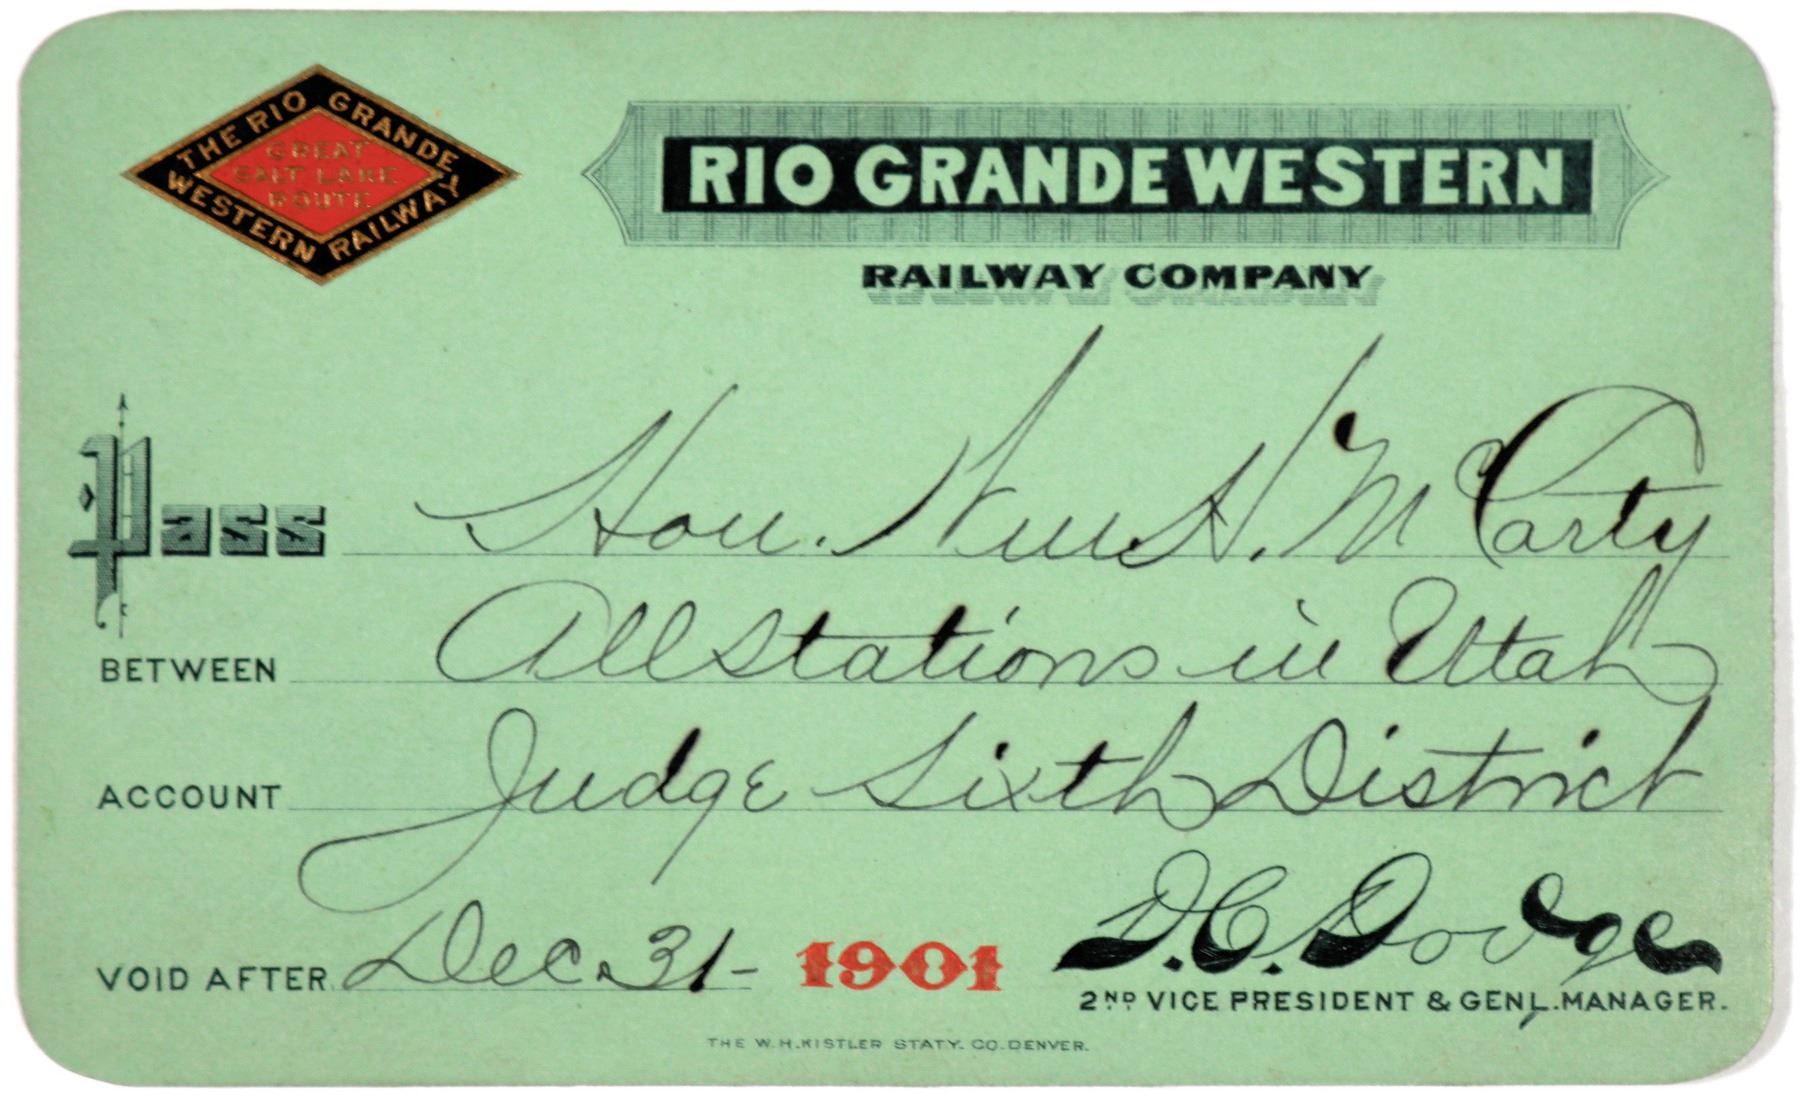 THE RIO GRANDE
GREAT
SALT LAKE
ROUTE
WESTERN RAILWAY
RIO GRANDE WESTERN
RAILWAY COMPANY
Pass Hon. Wm. H. McCarty
BETWEEN All Stations in Utah
ACCOUNT Judge Sixth District
VOID AFTER Dec. 31- 1901 D.C. Dodge
2ND VICE PRESIDENT & GENL. MANAGER.
THE W.H. KISTLER STATY. CO. DENVER.